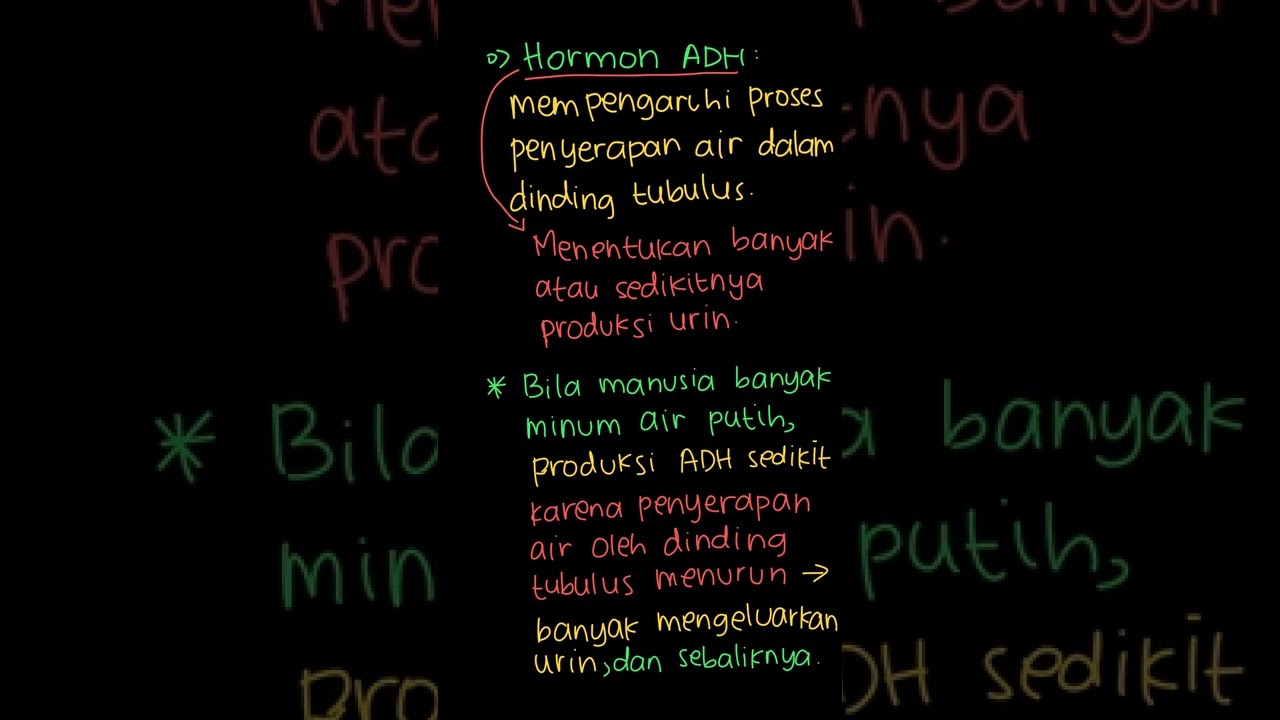 o> Hormon ADH:
mempengaruhi proses
penyerapan air dalam
dinding tubulus.
Menentukan banyak
atau sedikitnya
produksi urin.
* Bila manusia banyak
minum air putih,
produksi ADH sedikit
karena penyerapan
air oleh dinding
tubulus menurun →
banyak mengeluarkan
urin, dan sebaliknya.